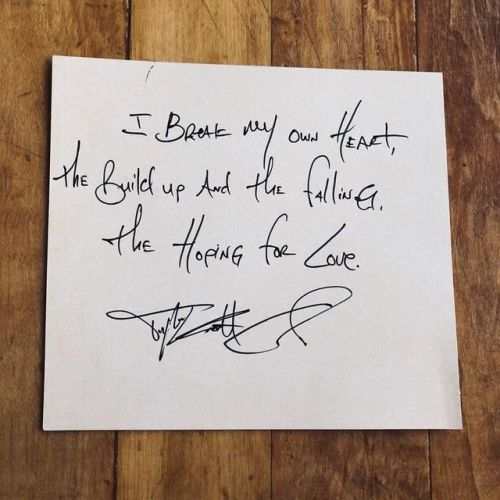 I Break my own Heart,
the Build up And the falling.
the Hoping for Love.